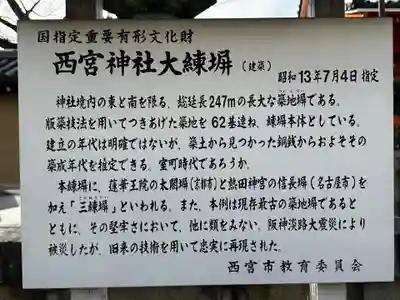 国指定重要有形文化財
西宮神社大練塀(建築)
昭和13年7月4日指定
神社境内の東と南を限る、総延長247mの長大な築地塀である。
版築技法を用いてつきあげた築地を62基連ね、練塀本体としている。
建立の年代は明確ではないが、築土から見つかった銅銭からおよその
築成年代を推定できる。室町時代であろうか。
本練塀に、蓮華王院の太閤塀(京都市)と熱田神宮の信長塀(名古屋市)を
加え「三練塀」といわれる。また、本例は現存最古の築地塀であると
ともに、その堅牢さにおいて、他に類をみない。阪神淡路大震災により
被災したが、旧来の技術を用いて忠実に再現された。
西宮市教育委員会